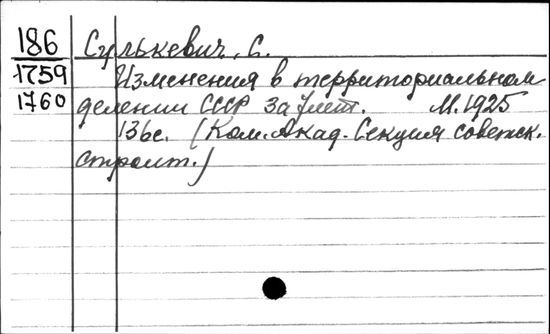 186 Сулькевич, С.
1759 Изменения в территориальном
1760 делении СССР за 7 лет. М. 1925
136с. (Ком. Акад. Секция советск.
строит.)